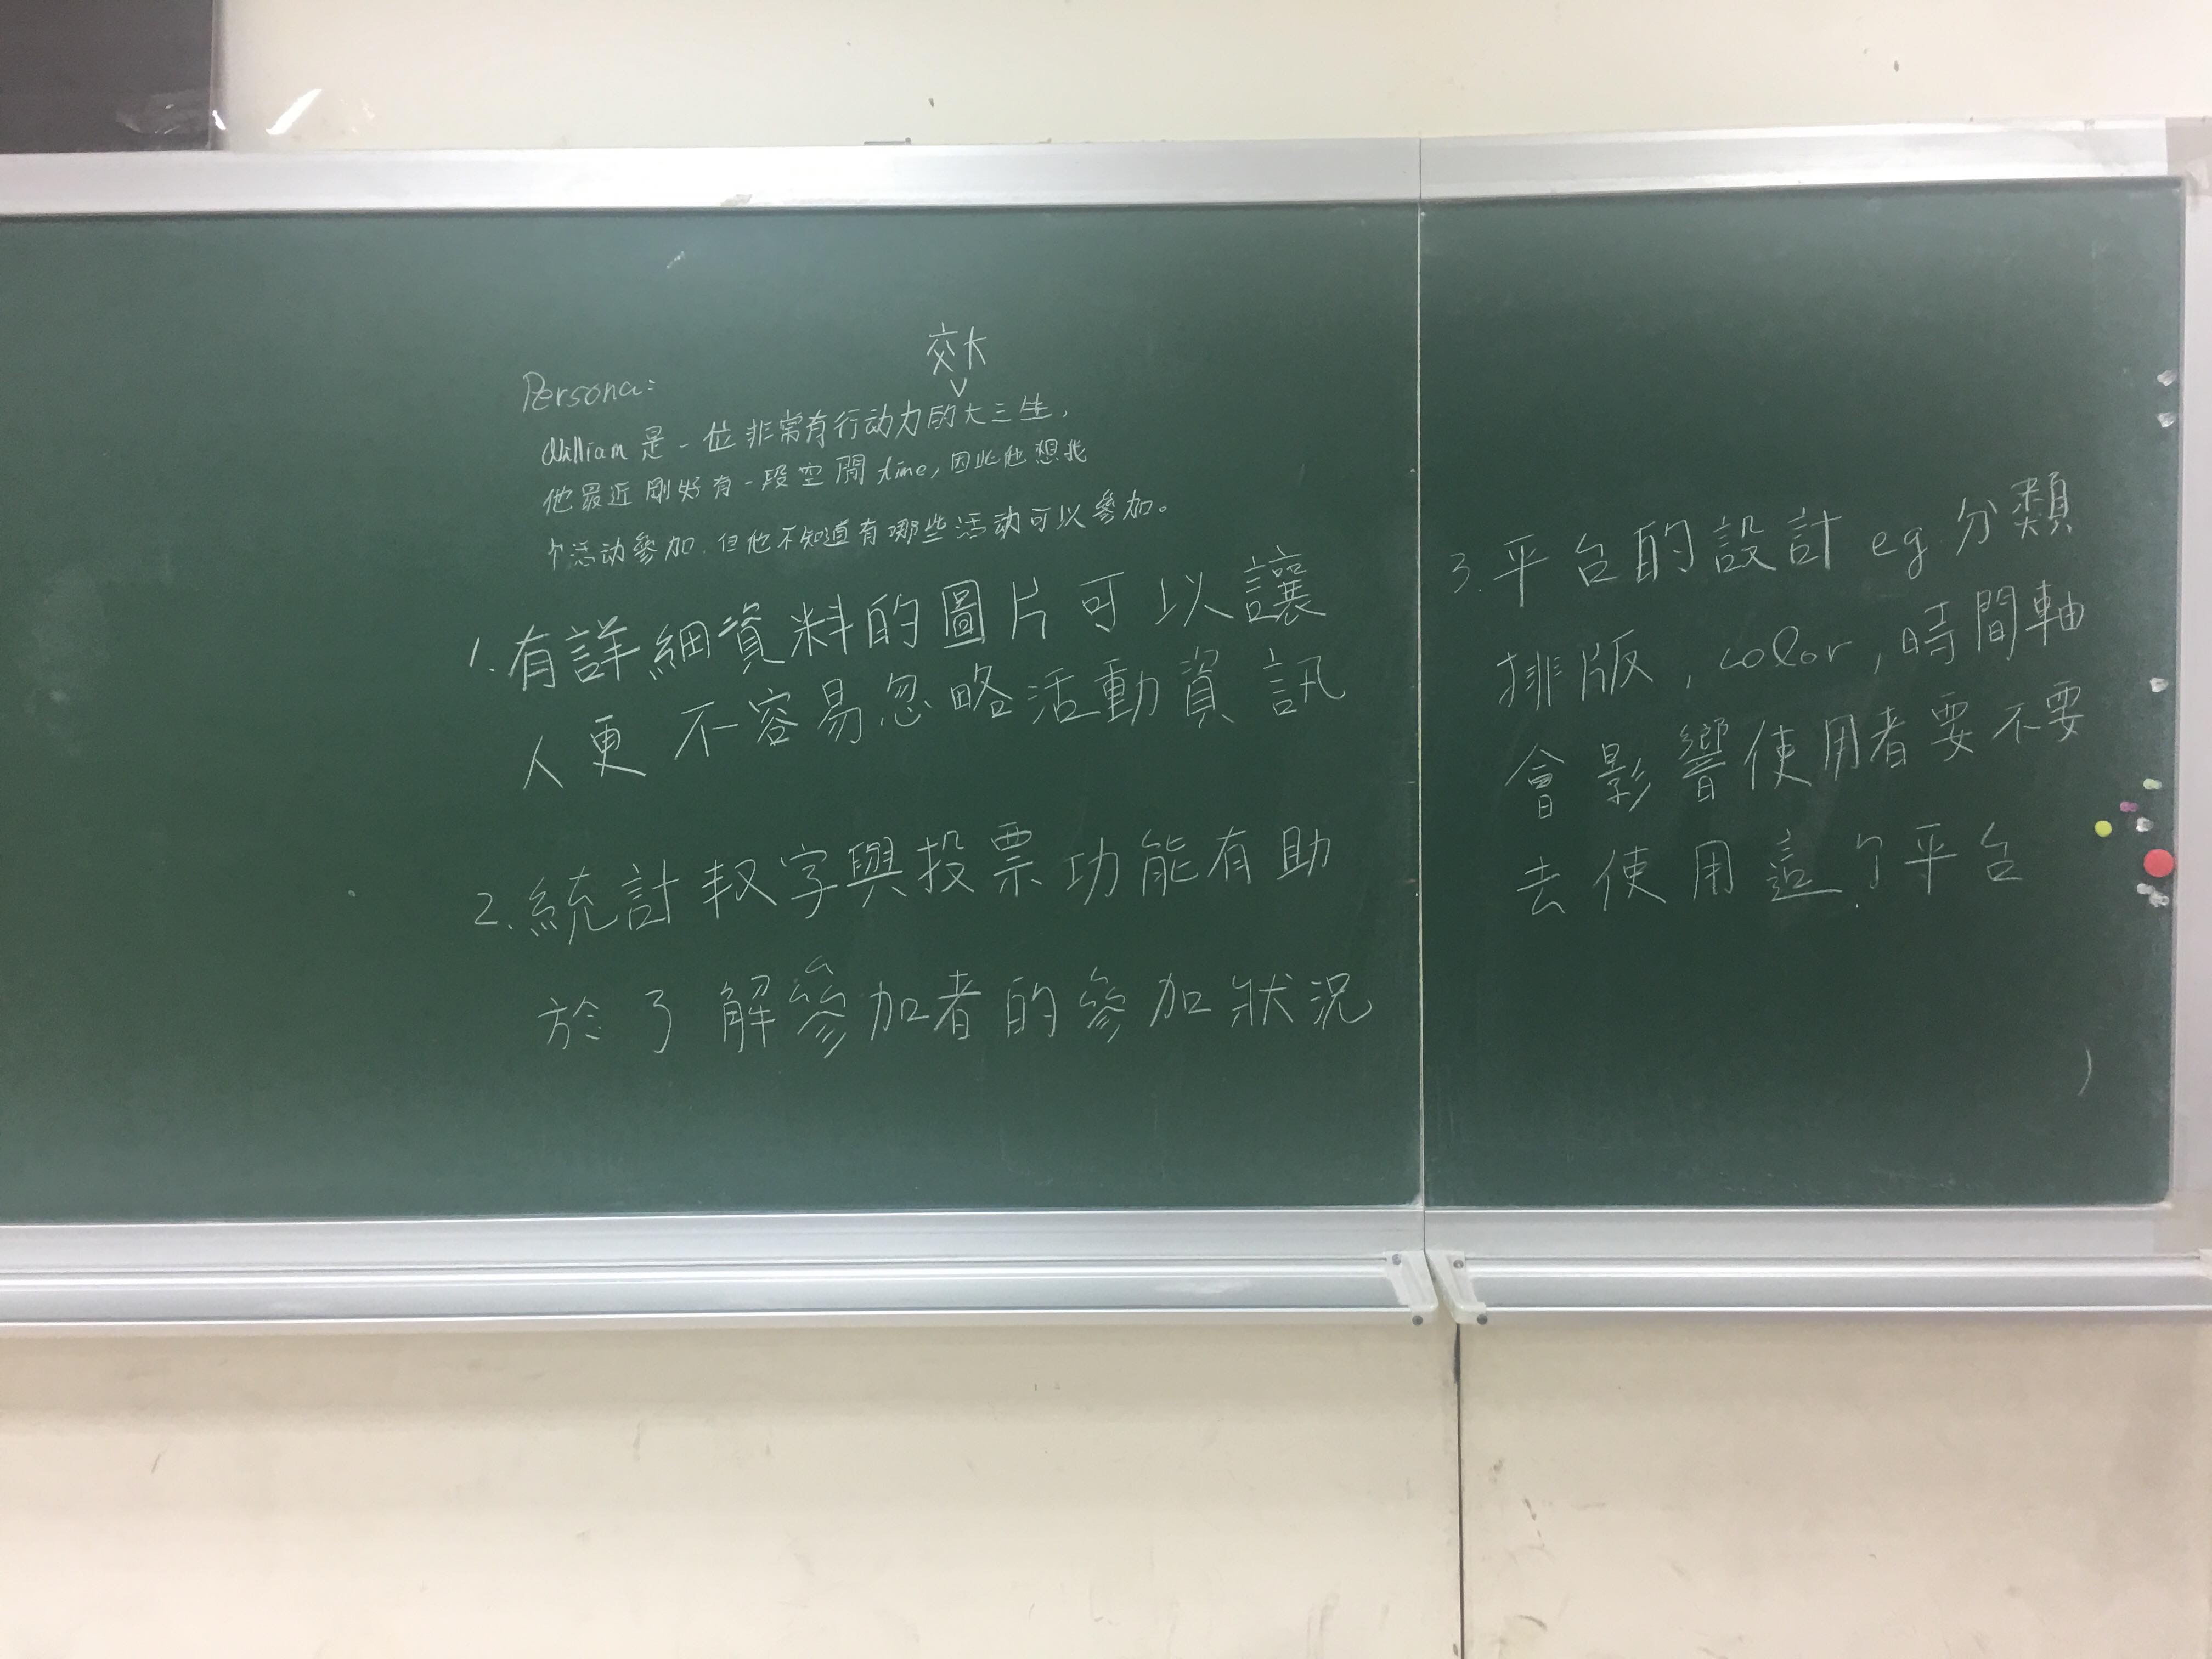 交大
Persona:
William是一位非常有行动力的大三生,
他最近剛好有一段空閒time,因此他想找
个活动參加,但他不知道有哪些活动可以參加。
1.有詳細資料的圖片可以讓
人更不容易忽略活動資訊
2.統計字與投票功能有助
於了解參加者的參加狀況
3.平台的設計eg分類
排版,color,時間軸
會影響使用者要不要
去使用這个平台